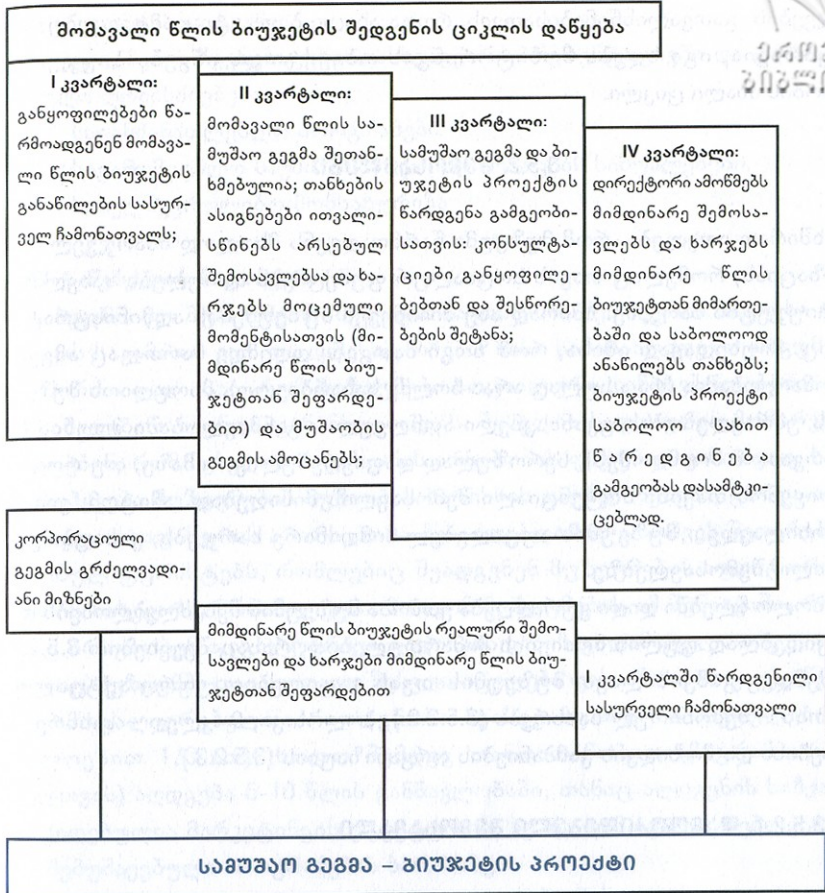 მომავალი წლის ბიუჯეტის შედგენის ციკლის დაწყება
I კვარტალი:
განყოფილებები წა-
რმოადგენენ მომავა-
ლი წლის ბიუჯეტის
განაწილების სასურ-
ველ ჩამონათვალს;
II კვარტალი:
მომავალი წლის სა-
მუშაო გეგმა შეთან-
ხმებულია; თანხების
ასიგნებები ითვალი-
სწინებს არსებულ
შემოსავლებსა და ხა-
რჯებს მოცემული
მომენტისათვის (მი-
მდინარე წლის ბიუ-
ჯეტთან შეფარდე-
ბით) და მუშაობის
გეგმის ამოცანებს;
III კვარტალი:
სამუშაო გეგმა და ბი-
უჯეტის პროექტის
წარდგენა გამგეობი-
სათვის: კონსულტა-
ციები განყოფილე-
ბებთან და შესწორე-
ბების შეტანა;
IV კვარტალი:
დირექტორი ამოწმებს
მიმდინარე შემოსა-
ვლებს და ხარჯებს
მიმდინარე წლის
ბიუჯეტთან მიმართე-
ბაში და საბოლოოდ
ანაწილებს თანხებს;
ბიუჯეტის პროექტი
საბოლოო სახით
წარედგინება
გამგეობას დასამტკი-
ცებლად.
კორპორაციული
გეგმის გრძელვადი-
ანი მიზნები
მიმდინარე წლის ბიუჯეტის რეალური შემო-
სავლები და ხარჯები მიმდინარე წლის ბიუ-
ჯეტთან შეფარდებით
I კვარტალში წარდგენილი
სასურველი ჩამონათვალი
სამუშაო გეგმა – ბიუჯეტის პროექტი